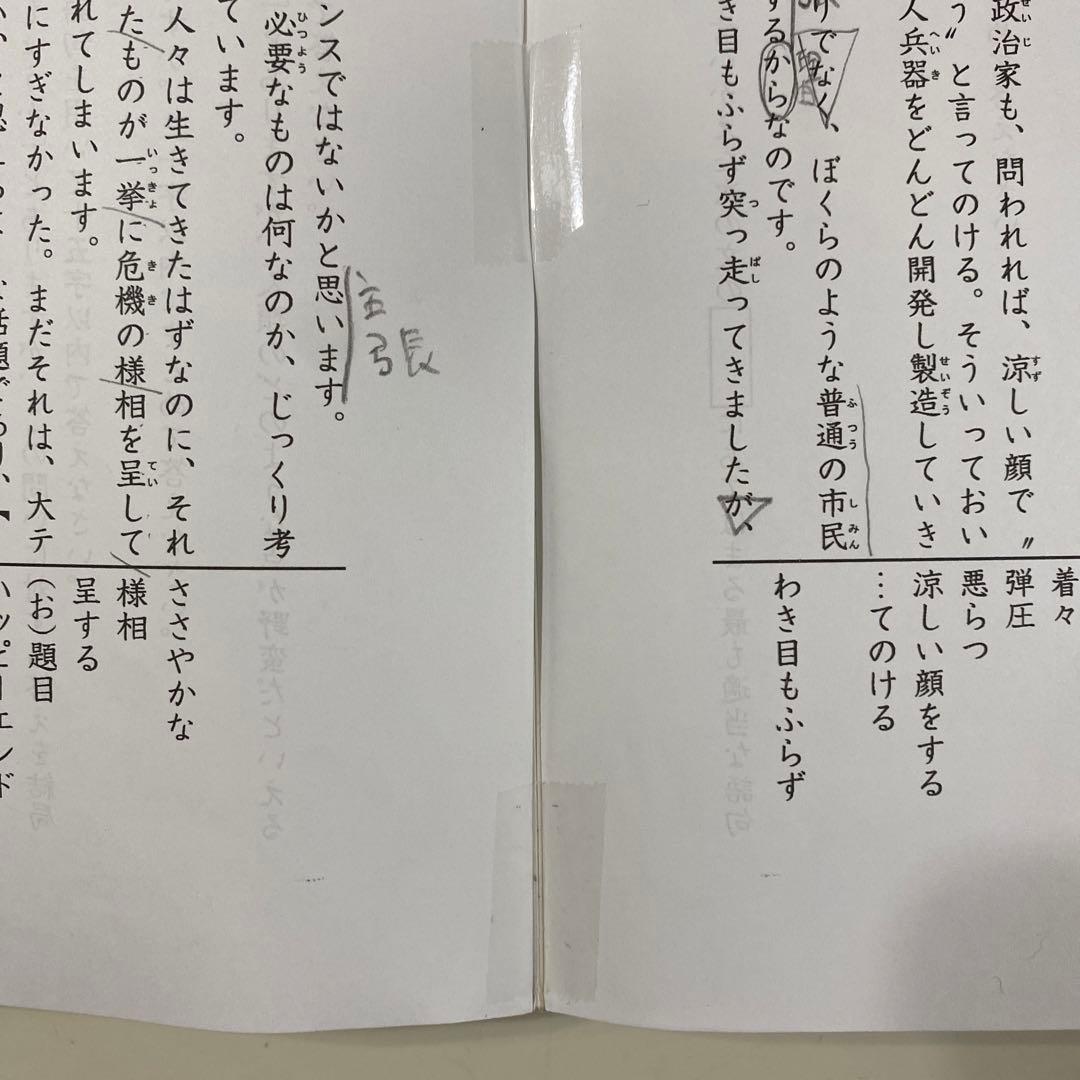 政治家も、問われれば、涼しい顔で〃
う〃と言ってのける。そういっておい
人兵器をどんどん開発し製造していき
りでなく、ぼくらのような普通の市民
するからなのです。
き目もふらず突っ走ってきましたが、
着々
弾圧
悪らつ
涼しい顔をする
…てのける
わき目もふらず
ンスではないかと思います。
主張
必要なものは何なのか、じっくり考
ています。
人々は生きてきたはずなのに、それ
たものが一挙に危機の様相を呈して
れてしまいます。
にすぎなかった。まだそれは、大テ
ささやかな
様相
呈する
(お)題目
ハッピーエンド